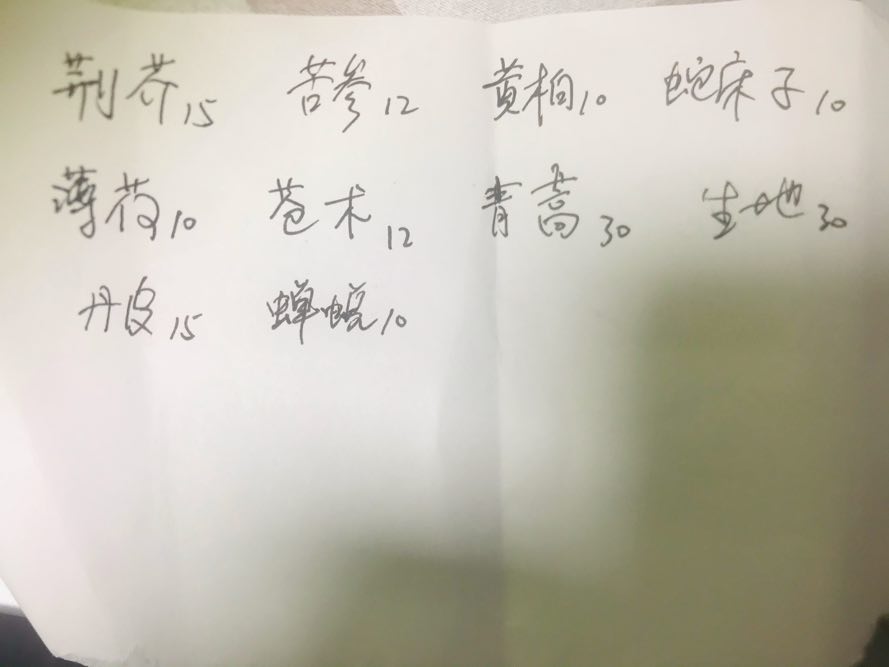 荆芥15 苦参12 黄柏10 蛇床子10
薄荷10 苍术12 青蒿30 生地30
丹皮15 蝉蜕10